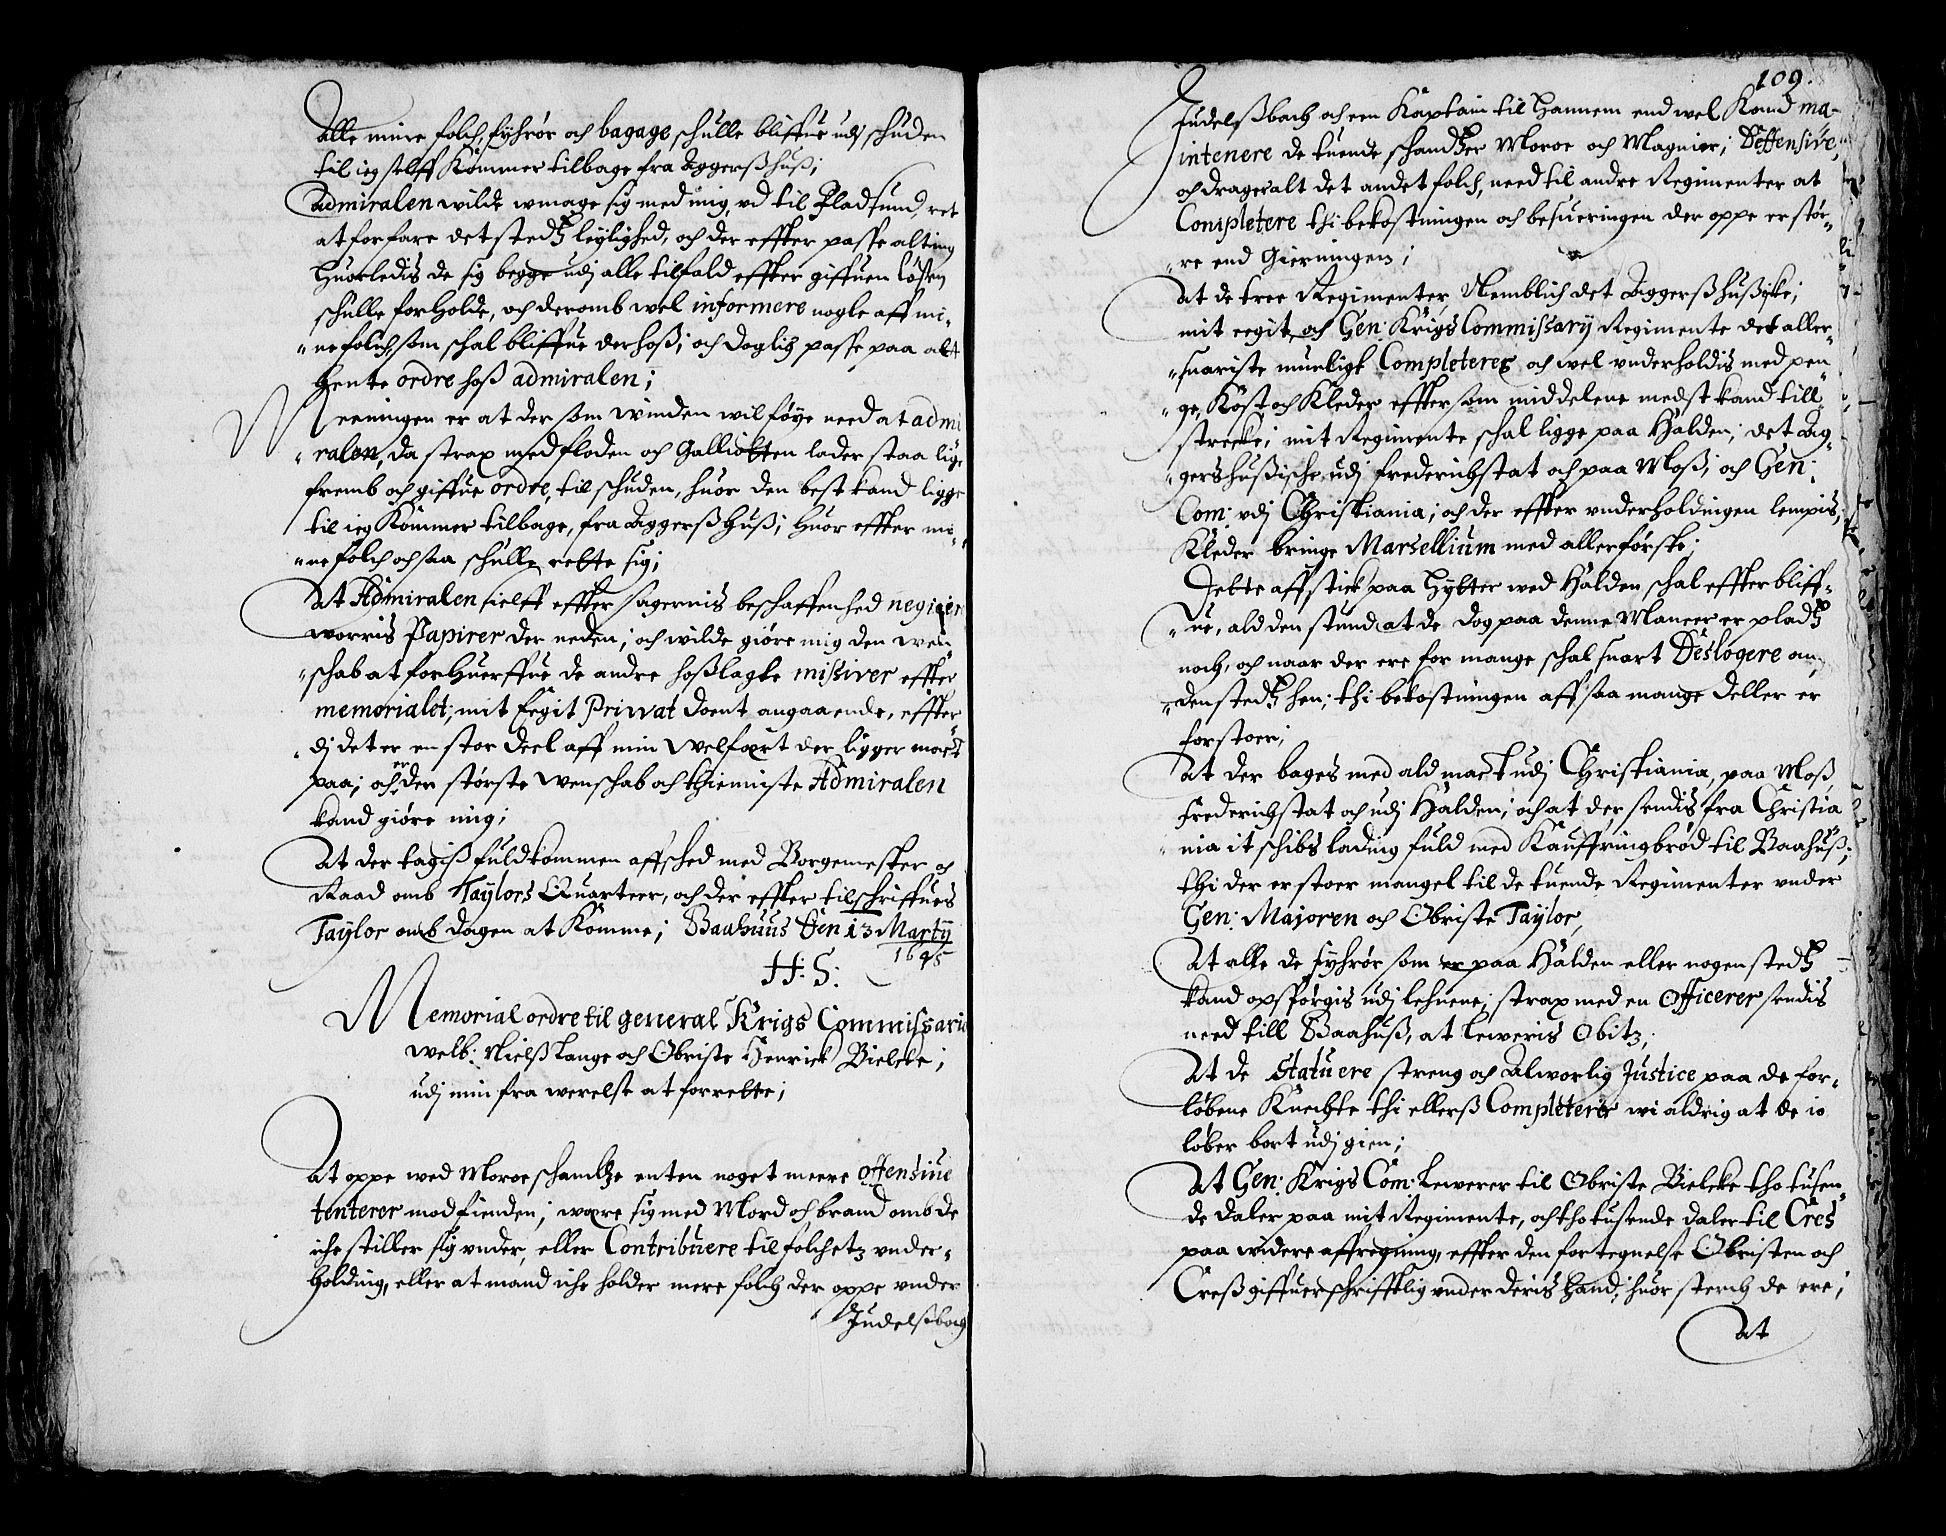 Alle mine folch, fyhrør och bagage schulle bliffue udj schuden
til ieg selff Kommer tilbage fra Aggerßhuß;
Admiralen wilde wmage sig med mig, ud til Fladsund, ret
at forfare det stedtz leylighed, och der effter passe alting
huorledis de sig begge udj alle tilfald effter giffuen løsen
schulle forholde, och deromb wel informere nogle aff mi-
ne folch, som schal bliffue derhoß; och doglig passe paa at
hente ordre hoß admiralen;
Meeningen er at der som winden wil føye need at admi
ralen, da strax med floden och Galliotten lader staa lige
fremb och giffue ordre, til schuden, huor den best kand ligge
til ieg Kommer tilbage, fra Aggerßhuß; huor effter mi-
ne folch och saa schulle rette sig;
At Admiralen sielff effter sagernis beschaffenhed negicer
worris Papirer der neden; och wilde giøre mig den wen
schab at forhuerffue de andre hoßlagte missiver effter
memorialet; mit Eegit Privat doent angaaende, effter
dj det er en stor deel aff min welfart der ligger macht
paa; och er den største wenschab och thienniste Admiralen
kand giøre mig;
At der tagiß fuldkommen affsched med Borgemester och
Raad omb Taylors Quarteer, och der effter tilschriffues
Taylor omb dagen at Komme; Baahuus den 13 Martij
1645
H: S:
Memorial ordre til general Krigs Commissario
welb: Nielß Lange och Obriste Henrick Bielcke;
udj min fra werelse at forrette;
At oppe wed Moroe schantze enten noget meere offensiue
tenterer mod fienden; were sig med Mord och brand omb de
iche stiller sig under, eller Contribuere til folchetz under-
holding, eller at mand iche holder mere folch der oppe under
Judelßbach
109.
Judelßbach och een Kaptain til hannem end wel Kand ma-
intenere de tuende schandtzer Moroe och Magnier; Deffensive,
och drager alt det andet folch, need til andre Regimenter at
Completere thi bekostningen och besueringen der oppe er stør-
re end Gierningen;
At de tree Regimenter Nemblich det Aggerßhußiske;
mit eegit och Gen: Krigs Commissarij Regimente det aller-
snariste mueligt Completeres och wel underholdis med pen
ge, Kost och Kleder effter som middelene medst kand till
strecke; mit Regimente schal ligge paa Halden; det Ag-
gershußische udj frederichstat och paa Moß; och Gen:
Com: udj Christiania; och der effter underholdingen lempis,
Kleder bringe Marsellium med allerførste;
Dette affstick paa Hytter wed Halden schal effter bliff-
ue, ald den stund at de dog paa denne Maneer er pladtz
noch, och naar der ere for mange schal snart Deslogere an-
denstedtz hen; thi bekostningen aff saa mange deller er
forstoer;
At der bages med ald mact udj Christiania, paa Moß,
frederichstat och udj Halden; och at der sendis fra Christia
nia it schibs lading fuld med Kauffringbrød til Baahuß;
thi der er stoer mangel til de tuende Regimenter under
Gen: Majoren och Obriste Taylor,
At alle de fyhrør som er paa Halden eller nogen stedtz
kand opspørgis udj lehnene; strax med en Officerer sendis
need till Baahuß, at leweris Obitz;
At de Statuere streng och Alworlig Justice paa de for-
løbene Knechte thi ellerß Completere wi aldrig at de io
løber bort udj gien;
At Gen: Krigs Com: Lewerer til Obriste Bielcke tho tusen
de daler paa mit Regimente, och tho tusende daler til Cres
paa widere affregning, effter den fortegnelse Obristen och
Creß giffuer schrifftlig under deris hand; huor sterch de ere;
At